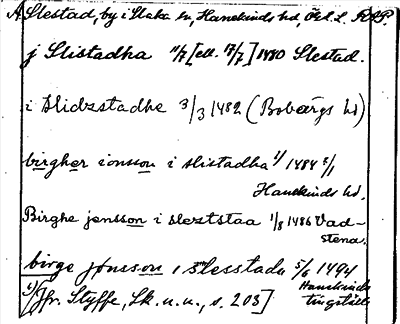 A Slestad, by i Slaka sn, Hanekinds hd, Östl. RAP.
j Slistadha 11/7 [ell. 17/7] 1480 Slestad.
i slidzstadhe 3/3 1482 (Bobergs hd)
birgher ionsson i slistadha 1) 1484 5/1
Hanekinds hd.
Birghe jensson i sleztstaa 1/8 1486 Vad-
stena.
birge jönsson i slesstada 5/6 1494
Hanekinds
1) [Jfr. Styffe, Sk. u. u., s. 203] tingställe